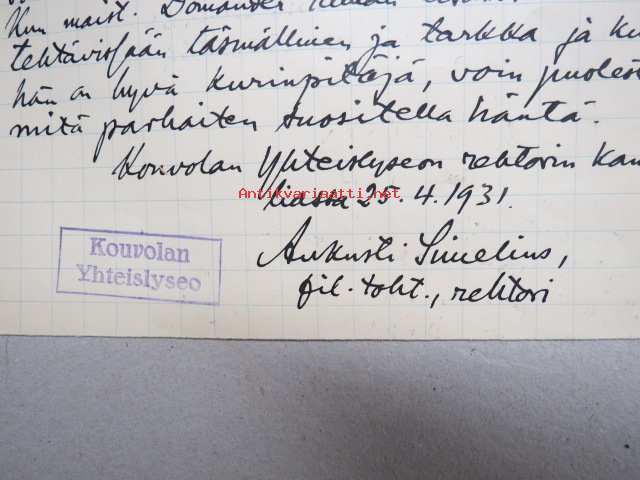 Kun maist. Domander
tehtävissään täsmällinen ja tarkka ja ku
hän on hyvä kurinpitäjä, voin puolest
mitä parhaiten suositella häntä.
Kouvolan Yhteislyseon rehtorin kan
Antikvariaatti.net
liassa 25.4.1931.
Aukusti Simelius,
fil. toht., rehtori
Kouvolan
Yhteislyseo